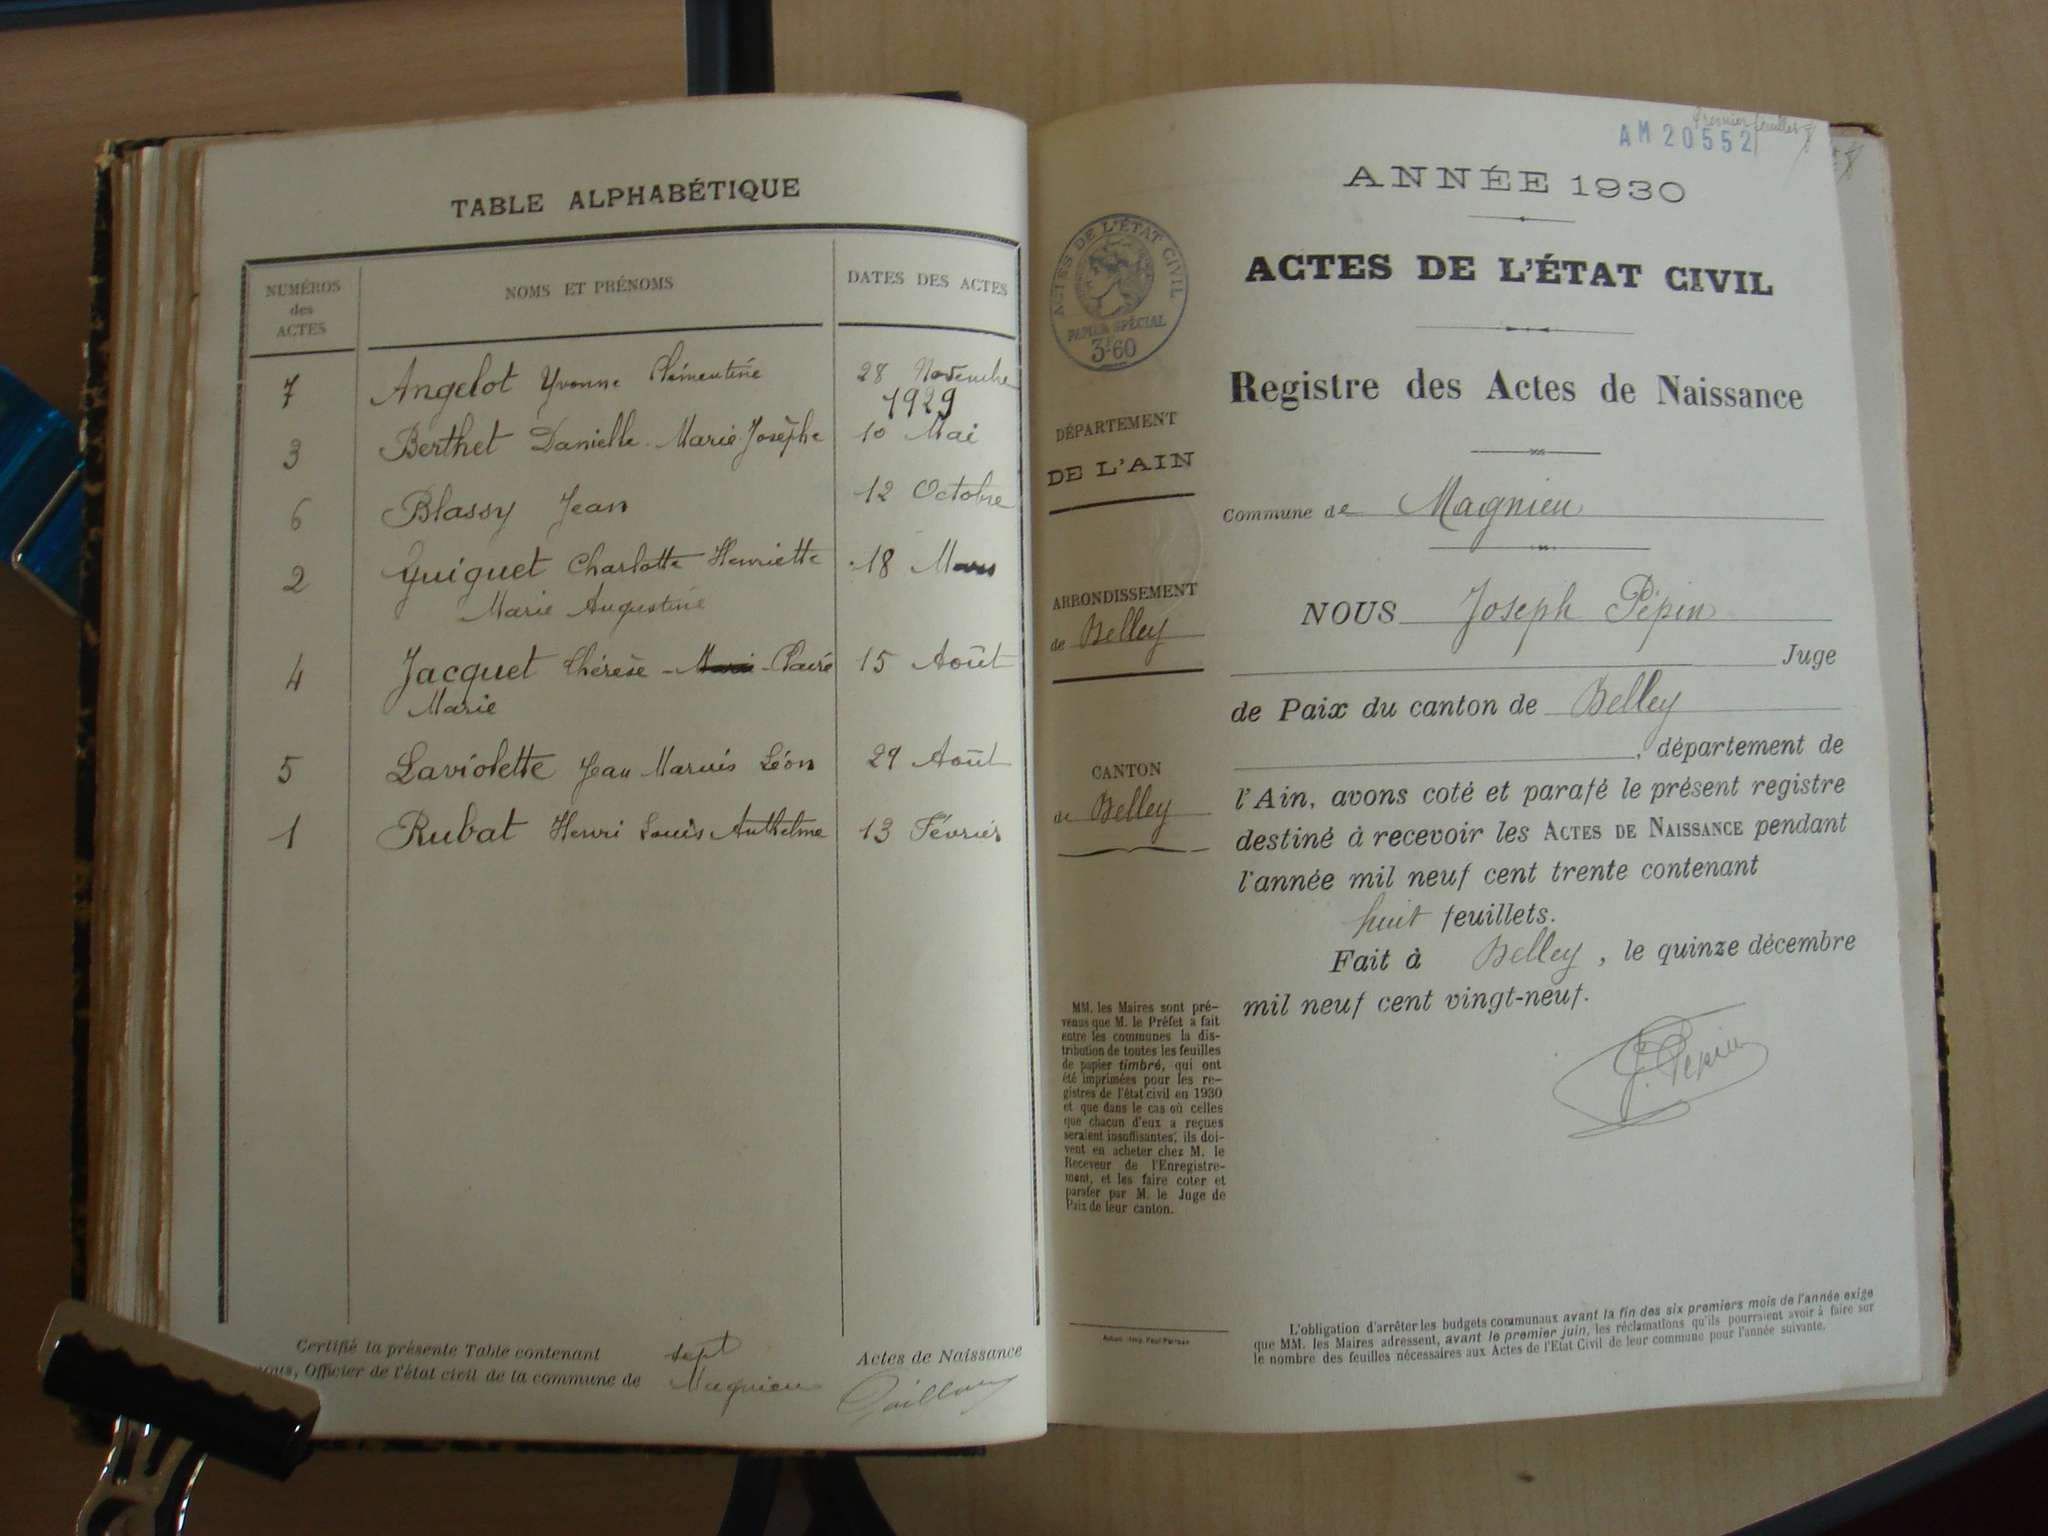 TABLE ALPHABÉTIQUE
NUMÉROS des ACTES
NOMS ET PRÉNOMS
DATES DES ACTES
7 Angelot Yvonne Clémentine 28 Novembre
1929
3 Berthet Danielle Marie Josèphe 10 Mai
6 Blassy Jean 12 Octobre
2 Guiguet Charlotte Henriette 18 Mars
Marie Augustine
4 Jacquet Thérèse Claire 15 Août
Marie
5 Laviolette Jean Marius Léon 29 Août
1 Rubat Henri Louis Anthelme 13 Février
Certifié la présente Table contenant sept Actes de Naissance
nous, Officier de l'état civil de la commune de Magnieu
AM 20552
premier feuillet
ANNÉE 1930
ACTES DE L'ÉTAT CIVIL
Registre des Actes de Naissance
ACTES DE L'ÉTAT CIVIL
PAPIER SPÉCIAL
3F60
DÉPARTEMENT
DE L'AIN
ARRONDISSEMENT
de Belley
CANTON
de Belley
MM. les Maires sont pré-
venus que M. le Préfet a fait
entre les communes la dis-
tribution de toutes les feuilles
de papier timbré, qui ont
été imprimées pour les re-
gistres de l'état civil en 1930
et que dans le cas où celles
que chacun d'eux a reçues
seraient insuffisantes, ils doi-
vent en acheter chez M. le
Receveur de l'Enregistre-
ment, et les faire coter et
parafer par M. le Juge de
Paix de leur canton.
Commune de Magnieu
NOUS Joseph Pépin
Juge
de Paix du canton de Belley
, département de
l'Ain, avons coté et parafé le présent registre
destiné à recevoir les ACTES DE NAISSANCE pendant
l'année mil neuf cent trente contenant
huit feuillets.
Fait à Belley, le quinze décembre
mil neuf cent vingt-neuf.
J. Pépin
L'obligation d'arrêter les budgets communaux avant la fin des six premiers mois de l'année exige
que MM. les Maires adressent, avant le premier juin, les réclamations qu'ils pourraient avoir à faire sur
le nombre des feuilles nécessaires aux Actes de l'Etat Civil de leur commune pour l'année suivante.